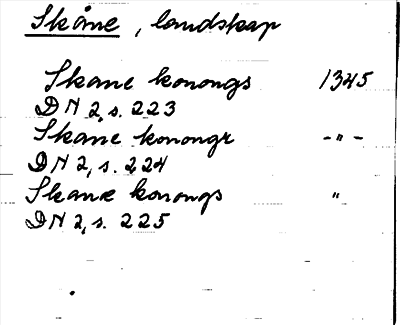 Skåne, landskap
Skane konongs 1345
DN 2, s. 223
Skane konongr -"-
DN 2, s. 224
Skanæ konongs "
DN 2, s. 225